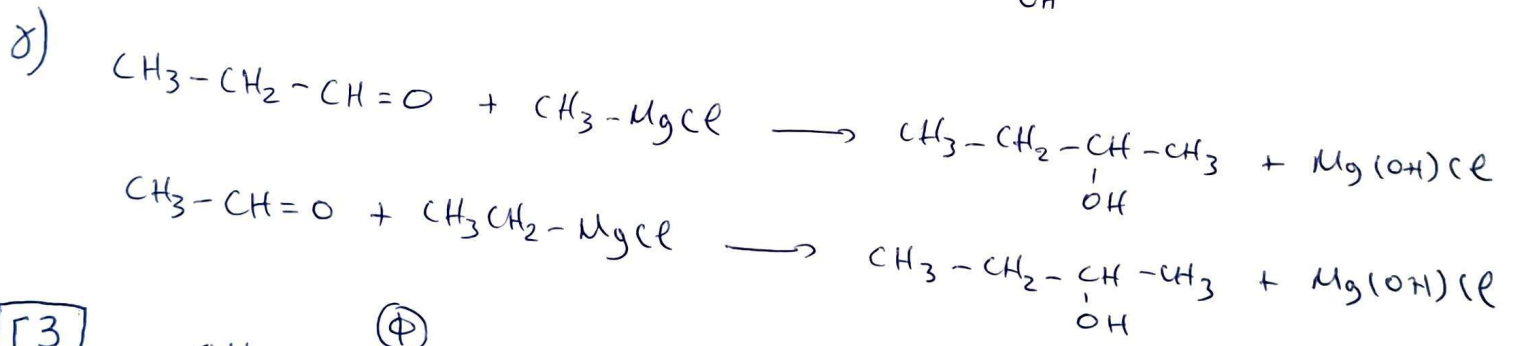 γ)
CH3-CH2-CH=O + CH3-MgCl ⟶ CH3-CH2-CH-CH3 + Mg(OH)Cl
OH
CH3-CH=O + CH3CH2-MgCl ⟶ CH3-CH2-CH-CH3 + Mg(OH)Cl
OH
Γ3
Φ